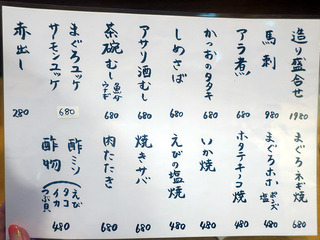 造り盛合せ 1980
馬刺 980
アラ煮 680
かつおのタタキ 680
しめさば 680
アサリ酒むし 680
茶碗むし 魚介 ウナギ 680
まぐろユッケ
サーモンユッケ 680
赤出し 280
まぐろネギ焼 680
まぐろホホ ポンズ 塩 480
ホタテキノコ焼 480
いか焼 480
えびの塩焼 480
焼きサバ 680
肉たたき 680
酢ミソ
酢物
えび
タコ
イカ
480